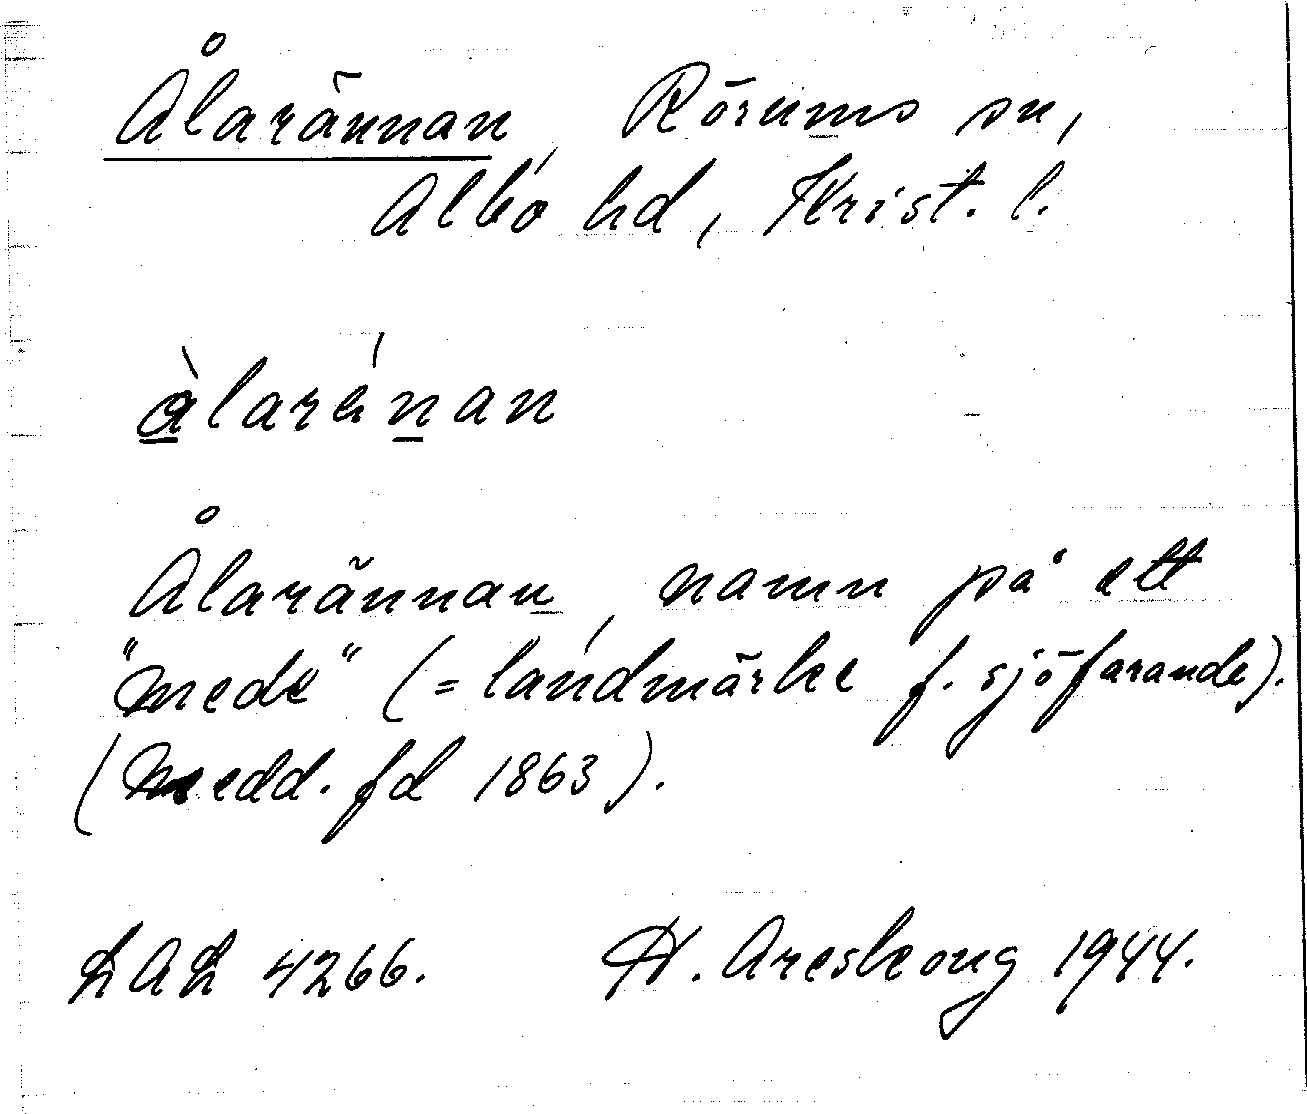 Ålarännan, Rörums sn,
Albo hd, Krist. l.
àlarǽnan
Ålarännan, namn på ett
"medk" (= landmärke f. sjöfarande).
(Medd. fd 1863).
LAL 4266. H. Areskoug 1944.